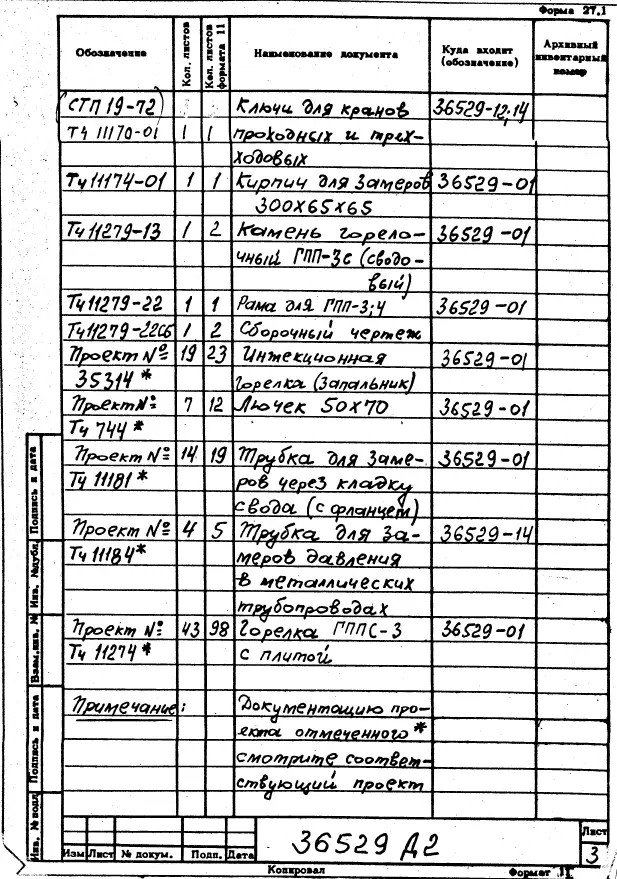 Форма 27.1
Обозначение Кол. листов Кол. листов формата 11 Наименование документа Куда входит (обозначение) Архивный инвентарный номер
(СТП 19-72) Ключи для кранов 36529-12;14
ТЧ 11170-01 1 1 проходных и трех-
ходовых
ТЧ 11174-01 1 1 Кирпич для замеров 36529-01
300х65х65
ТЧ 11279-13 1 2 Камень горело- 36529-01
чный ГПП-3с (сводо-
вый)
ТЧ 11279-22 1 1 Рама для ГПП-3;4 36529-01
ТЧ 11279-22СБ 1 2 Сборочный чертеж
Проект № 19 23 Инжекционная 36529-01
35314* горелка (запальник)
Проект № 7 12 Лючек 50х70 36529-01
ТЧ 744*
Проект № 14 19 Трубка для заме- 36529-01
ТЧ 11181* ров через кладку
свода (с фланцем)
Проект № 4 5 Трубка для за- 36529-14
ТЧ 11184* меров давления
в металлических
трубопроводах
Проект № 43 98 Горелка ГППС-3 36529-01
ТЧ 11274* с плитой
Примечание: Документацию про-
екта отмеченного*
смотрите соответ-
ствующий проект
Инв. № подл. Подпись и дата Взам. инв. № Инв. № дубл. Подпись и дата
Изм Лист № докум. Подп. Дата
36529 Д2
Лист
3
Копировал Формат 11